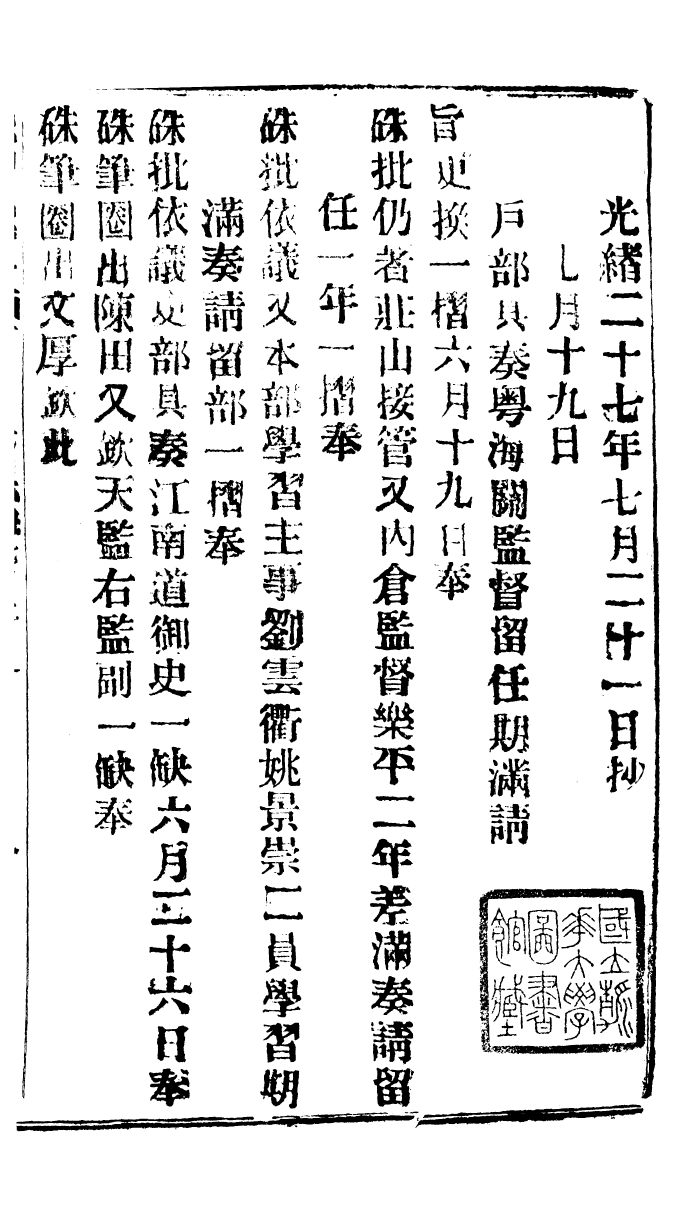 光緒二十七年七月二十一日抄
七月十九日
戶部具奏粵海關監督留任期滿請
旨更換一摺六月十九日奉
硃批仍著莊山接管又內倉監督樂平二年差滿奏請留
任一年一摺奉
硃批依議又本部學習主事劉雲衢姚景崇二員學習期
滿奏請留部一摺奉
硃批依議吏部具奏江南道御史一缺六月二十六日奉
硃筆圈出陳田又欽天監右監副一缺奉
硃筆圈出文厚欽此
國立清華大學圖書館藏